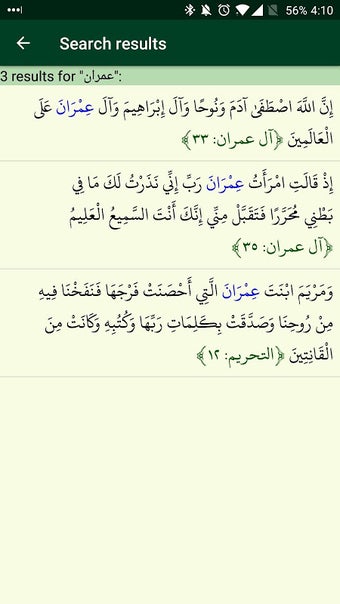 56% 4:10
Search results
3 results for "عمران":
إِنَّ اللَّهَ اصْطَفَىٰ آدَمَ وَنُوحًا وَآلَ إِبْرَاهِيمَ وَآلَ عِمْرَانَ عَلَى
الْعَالَمِينَ ﴿آل عمران: ٣٣﴾
إِذْ قَالَتِ امْرَأَتُ عِمْرَانَ رَبِّ إِنِّي نَذَرْتُ لَكَ مَا فِي
بَطْنِي مُحَرَّرًا فَتَقَبَّلْ مِنِّي إِنَّكَ أَنْتَ السَّمِيعُ الْعَلِيمُ
﴿آل عمران: ٣٥﴾
وَمَرْيَمَ ابْنَتَ عِمْرَانَ الَّتِي أَحْصَنَتْ فَرْجَهَا فَنَفَخْنَا فِيهِ
مِنْ رُوحِنَا وَصَدَّقَتْ بِكَلِمَاتِ رَبِّهَا وَكُتُبِهِ وَكَانَتْ مِنَ
الْقَانِتِينَ ﴿التحريم: ١٢﴾